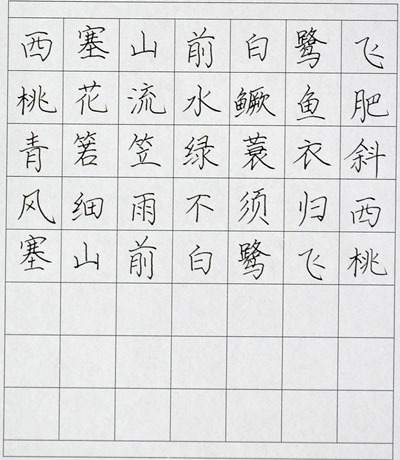 西塞山前白鹭飞
桃花流水鳜鱼肥
青箬笠绿蓑衣斜
风细雨不须归西
塞山前白鹭飞桃